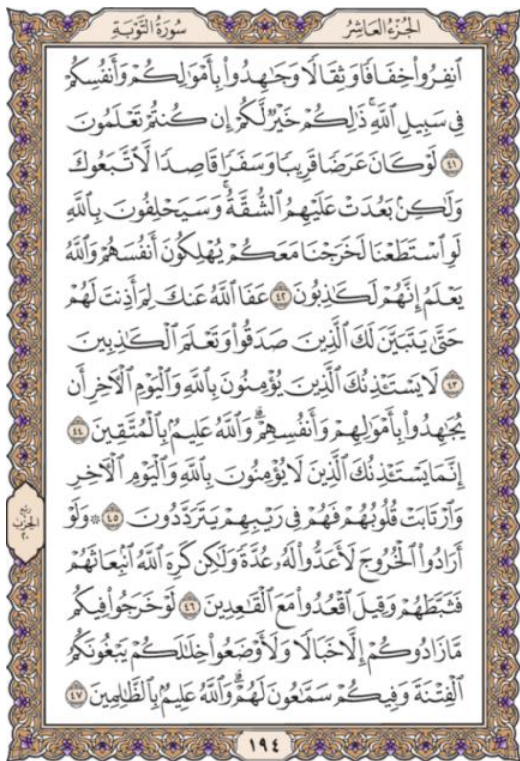 الجُزْءُ العَاشِرُ سُورَةُ التَّوْبَةِ
ٱنفِرُوا۟ خِفَافًا وَثِقَالًا وَجَٰهِدُوا۟ بِأَمْوَٰلِكُمْ وَأَنفُسِكُمْ
فِى سَبِيلِ ٱللَّهِ ۚ ذَٰلِكُمْ خَيْرٌ لَّكُمْ إِن كُنتُمْ تَعْلَمُونَ
٤١ لَوْ كَانَ عَرَضًا قَرِيبًا وَسَفَرًا قَاصِدًا لَّٱتَّبَعُوكَ
وَلَٰكِنۢ بَعُدَتْ عَلَيْهِمُ ٱلشُّقَّةُ ۚ وَسَيَحْلِفُونَ بِٱللَّهِ
لَوِ ٱسْتَطَعْنَا لَخَرَجْنَا مَعَكُمْ يُهْلِكُونَ أَنفُسَهُمْ وَٱللَّهُ
يَعْلَمُ إِنَّهُمْ لَكَٰذِبُونَ ٤٢ عَفَا ٱللَّهُ عَنكَ لِمَ أَذِنتَ لَهُمْ
حَتَّىٰ يَتَبَيَّنَ لَكَ ٱلَّذِينَ صَدَقُوا۟ وَتَعْلَمَ ٱلْكَٰذِبِينَ
٤٣ لَا يَسْتَـْٔذِنُكَ ٱلَّذِينَ يُؤْمِنُونَ بِٱللَّهِ وَٱلْيَوْمِ ٱلْـَٔاخِرِ أَن
يُجَٰهِدُوا۟ بِأَمْوَٰلِهِمْ وَأَنفُسِهِمْ ۗ وَٱللَّهُ عَلِيمٌۢ بِٱلْمُتَّقِينَ ٤٤
إِنَّمَا يَسْتَـْٔذِنُكَ ٱلَّذِينَ لَا يُؤْمِنُونَ بِٱللَّهِ وَٱلْيَوْمِ ٱلْـَٔاخِرِ
وَٱرْتَابَتْ قُلُوبُهُمْ فَهُمْ فِى رَيْبِهِمْ يَتَرَدَّدُونَ ٤٥ ۞ وَلَوْ
أَرَادُوا۟ ٱلْخُرُوجَ لَأَعَدُّوا۟ لَهُۥ عُدَّةً وَلَٰكِن كَرِهَ ٱللَّهُ ٱنۢبِعَاثَهُمْ
فَثَبَّطَهُمْ وَقِيلَ ٱقْعُدُوا۟ مَعَ ٱلْقَٰعِدِينَ ٤٦ لَوْ خَرَجُوا۟ فِيكُم
مَّا زَادُوكُمْ إِلَّا خَبَالًا وَلَأَوْضَعُوا۟ خِلَٰلَكُمْ يَبْغُونَكُمُ
ٱلْفِتْنَةَ وَفِيكُمْ سَمَّٰعُونَ لَهُمْ ۗ وَٱللَّهُ عَلِيمٌۢ بِٱلظَّٰلِمِينَ ٤٧
ربع
الحزب
٢٠
١٩٤